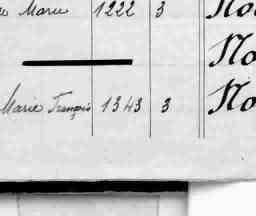 Marie 1222 3 No
No
Marie François 1343 3 No